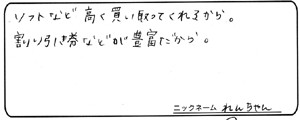 ソフトなど高く買い取ってくれるから。
割り引き券などが豊富だから。
ニックネーム れんちゃん